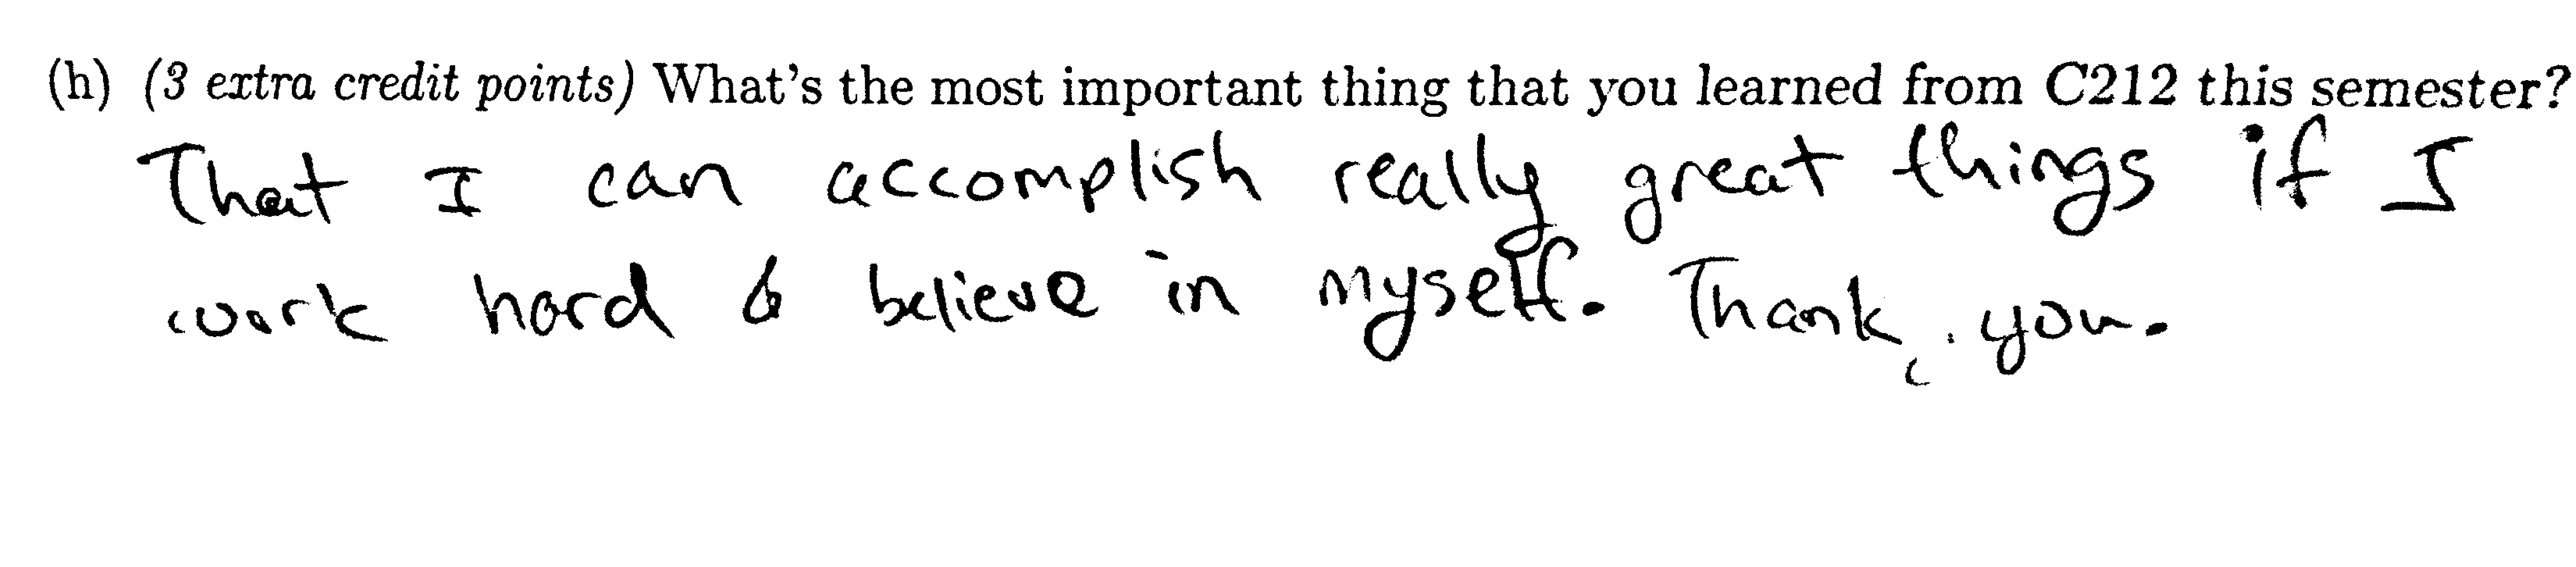 (h) (3 extra credit points) What's the most important thing that you learned from C212 this semester?
That I can accomplish really great things if I
work hard & believe in myself. Thank you.